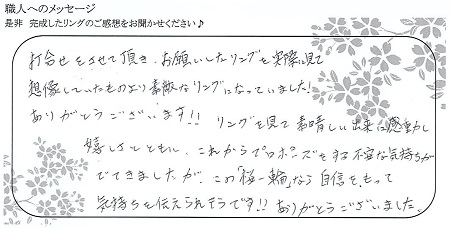 職人へのメッセージ
是非 完成したリングのご感想をお聞かせください♪
打合せをさせて頂き、お願いしたリングを実際に見て
想像していたものより素敵なリングになっていました!
ありがとうございます!! リングを見て素晴しい出来に感動し
嬉しさとともに、これからプロポーズをする不安な気持ちが
でてきましたが、この「桜一輪」なら自信をもって
気持ちを伝えられそうです!! ありがとうございました。